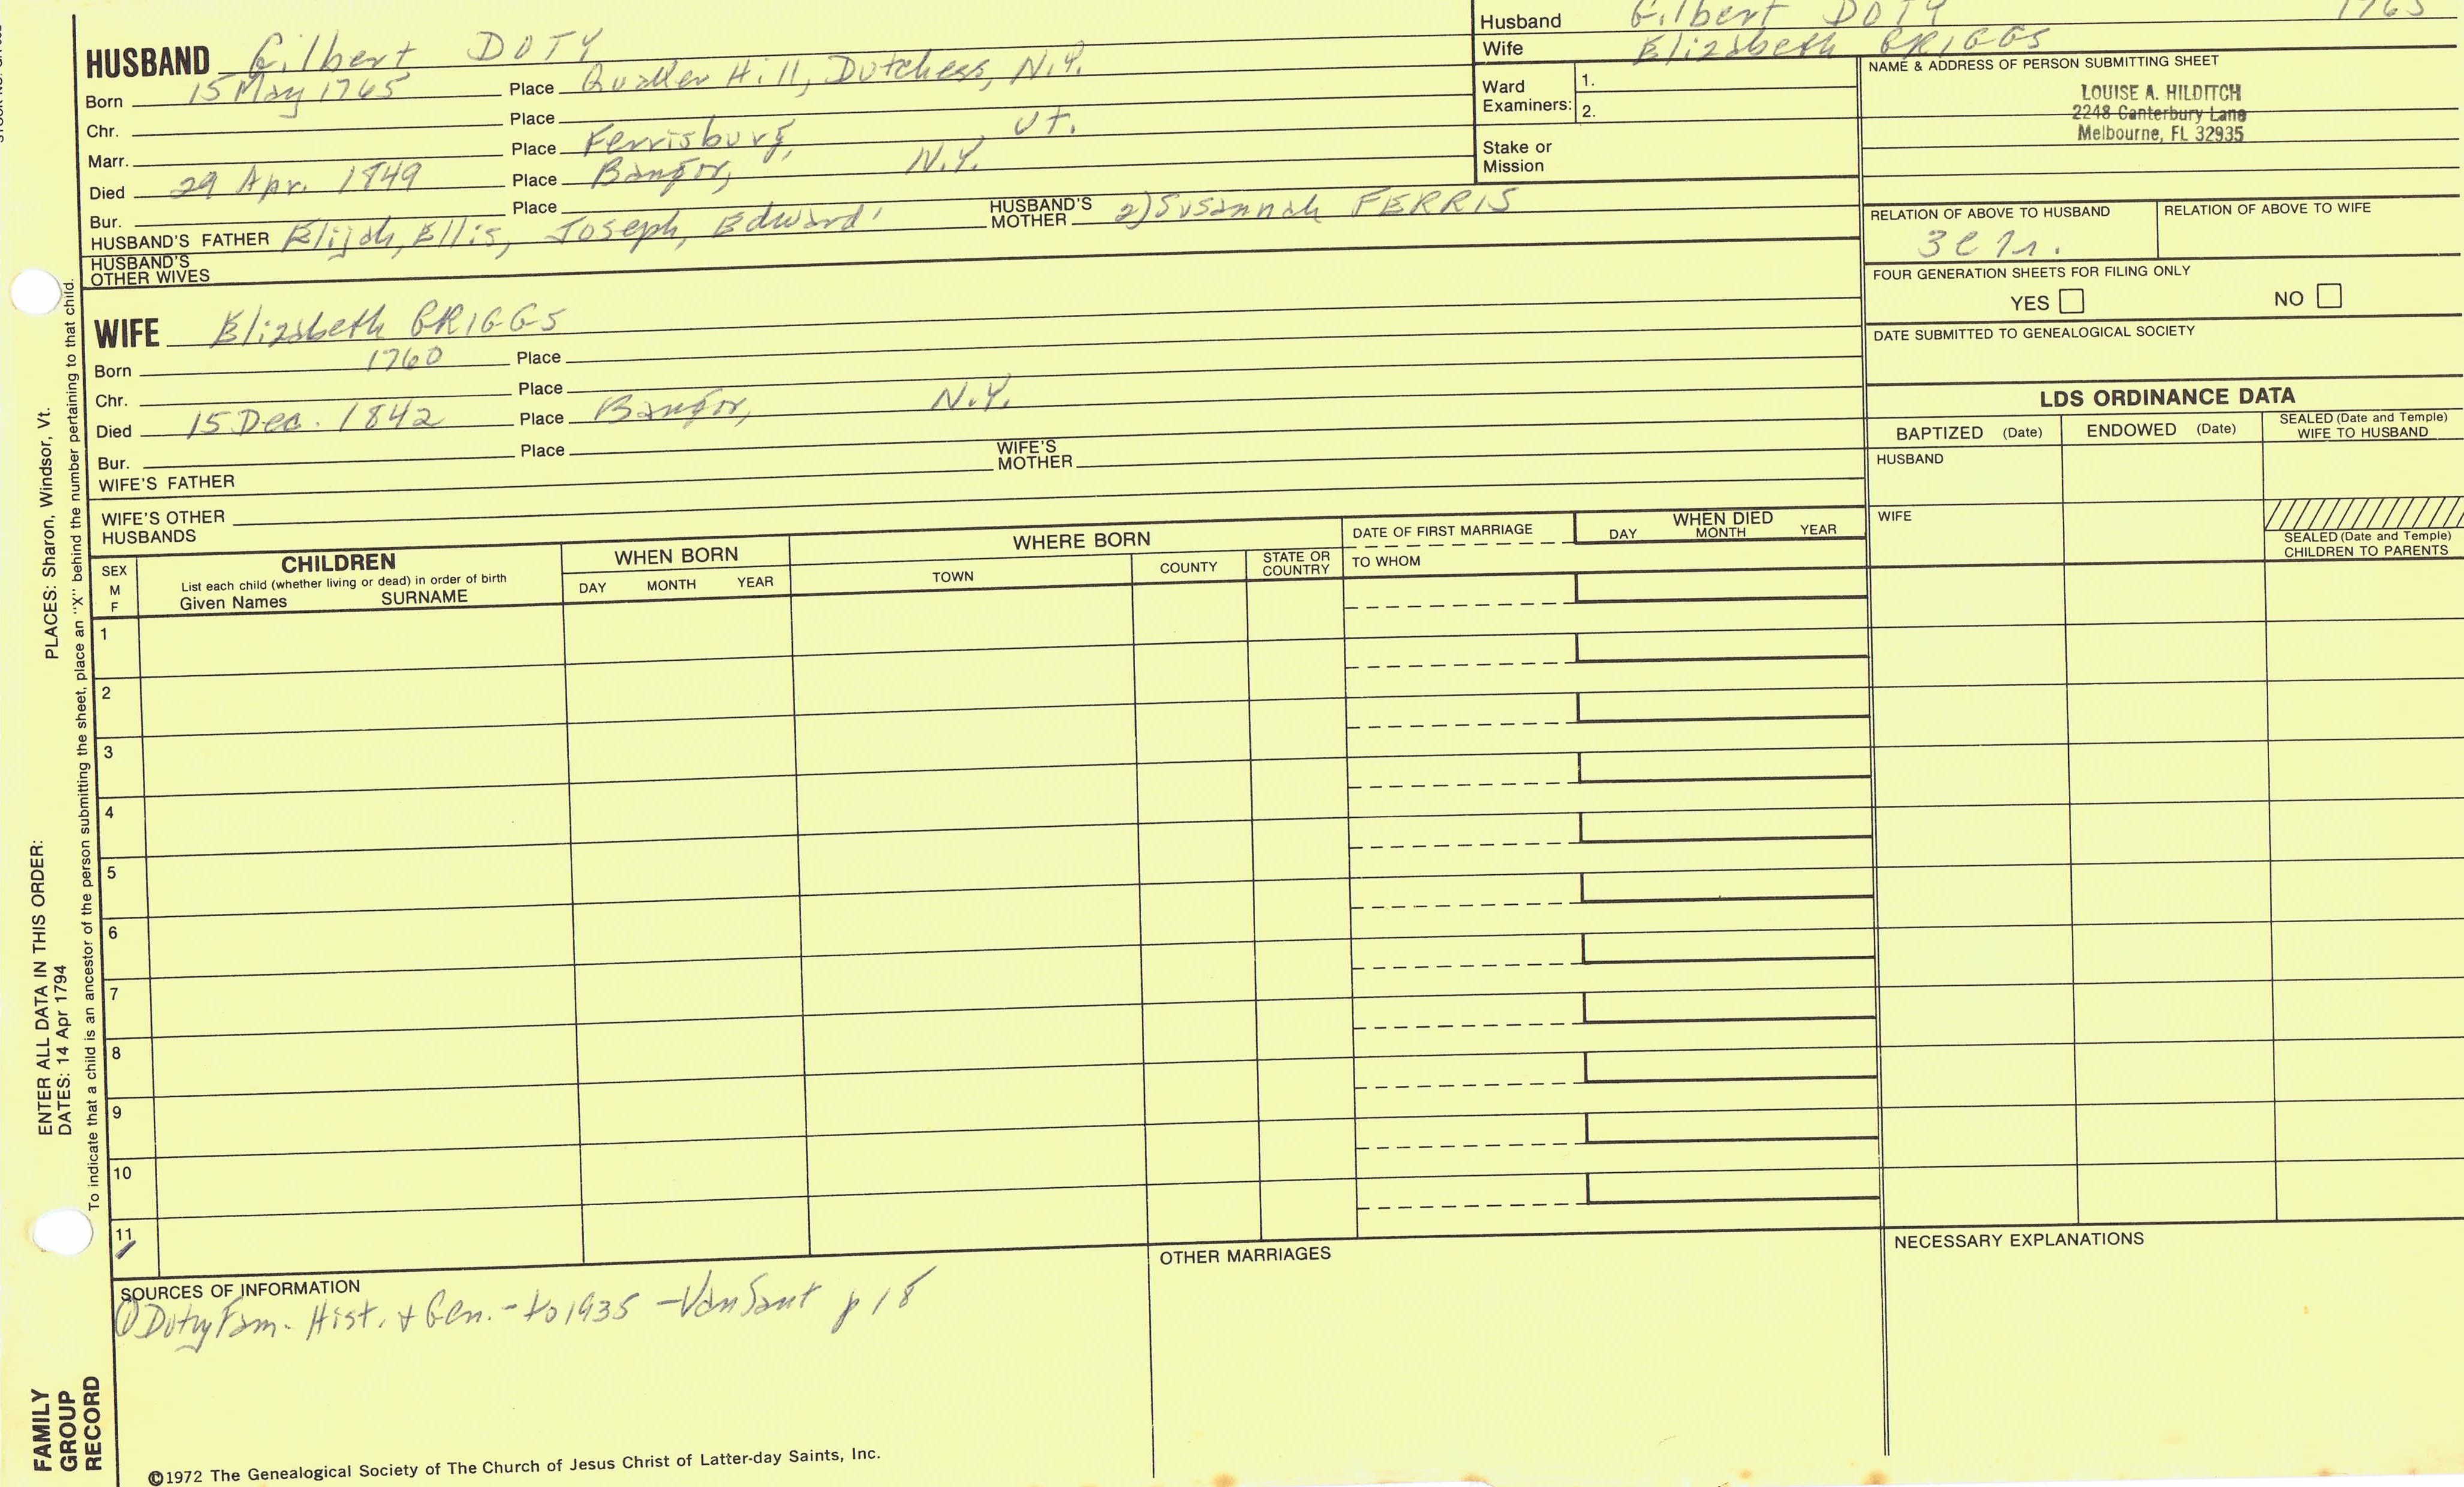 Husband Gilbert DOTY 1765
Wife Elizabeth BRIGGS
HUSBAND Gilbert DOTY
Born 15 May 1765 Place Quaker Hill, Dutchess, N.Y.
Chr. Place
Marr. Place Ferrisburg, , Vt.
Died 29 Apr. 1849 Place Bangor, N.Y.
Bur. Place
HUSBAND'S FATHER Elijah, Ellis, Joseph, Edward HUSBAND'S MOTHER 2) Susannah FERRIS
HUSBAND'S OTHER WIVES
Ward Examiners: 1.
2.
Stake or Mission
NAME & ADDRESS OF PERSON SUBMITTING SHEET
LOUISE A. HILDITCH
2248 Canterbury Lane
Melbourne, FL 32935
RELATION OF ABOVE TO HUSBAND RELATION OF ABOVE TO WIFE
FOUR GENERATION SHEETS FOR FILING ONLY
YES NO
DATE SUBMITTED TO GENEALOGICAL SOCIETY
WIFE Elizabeth BRIGGS
Born 1760 Place
Chr. Place
Died 15 Dec. 1842 Place Bangor, N.Y.
Bur. Place
WIFE'S FATHER WIFE'S MOTHER
WIFE'S OTHER HUSBANDS
LDS ORDINANCE DATA
BAPTIZED (Date) ENDOWED (Date) SEALED (Date and Temple) WIFE TO HUSBAND
HUSBAND
WIFE
SEALED (Date and Temple) CHILDREN TO PARENTS
SEX M F
CHILDREN
List each child (whether living or dead) in order of birth
Given Names SURNAME
WHEN BORN
DAY MONTH YEAR
WHERE BORN
TOWN COUNTY STATE OR COUNTRY
DATE OF FIRST MARRIAGE
TO WHOM
WHEN DIED
DAY MONTH YEAR
1
2
3
4
5
6
7
8
9
10
11
SOURCES OF INFORMATION
① Doty Fam. Hist. & Gen. - to 1935 - VanSant p 18
OTHER MARRIAGES
NECESSARY EXPLANATIONS
©1972 The Genealogical Society of The Church of Jesus Christ of Latter-day Saints, Inc.
FAMILY GROUP RECORD
ENTER ALL DATA IN THIS ORDER:
DATES: 14 Apr 1794
PLACES: Sharon, Windsor, Vt.
To indicate that a child is an ancestor of the person submitting the sheet, place an "X" behind the number pertaining to that child.